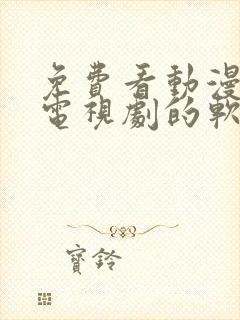 免費看動漫
電視劇的軟
寶鈴